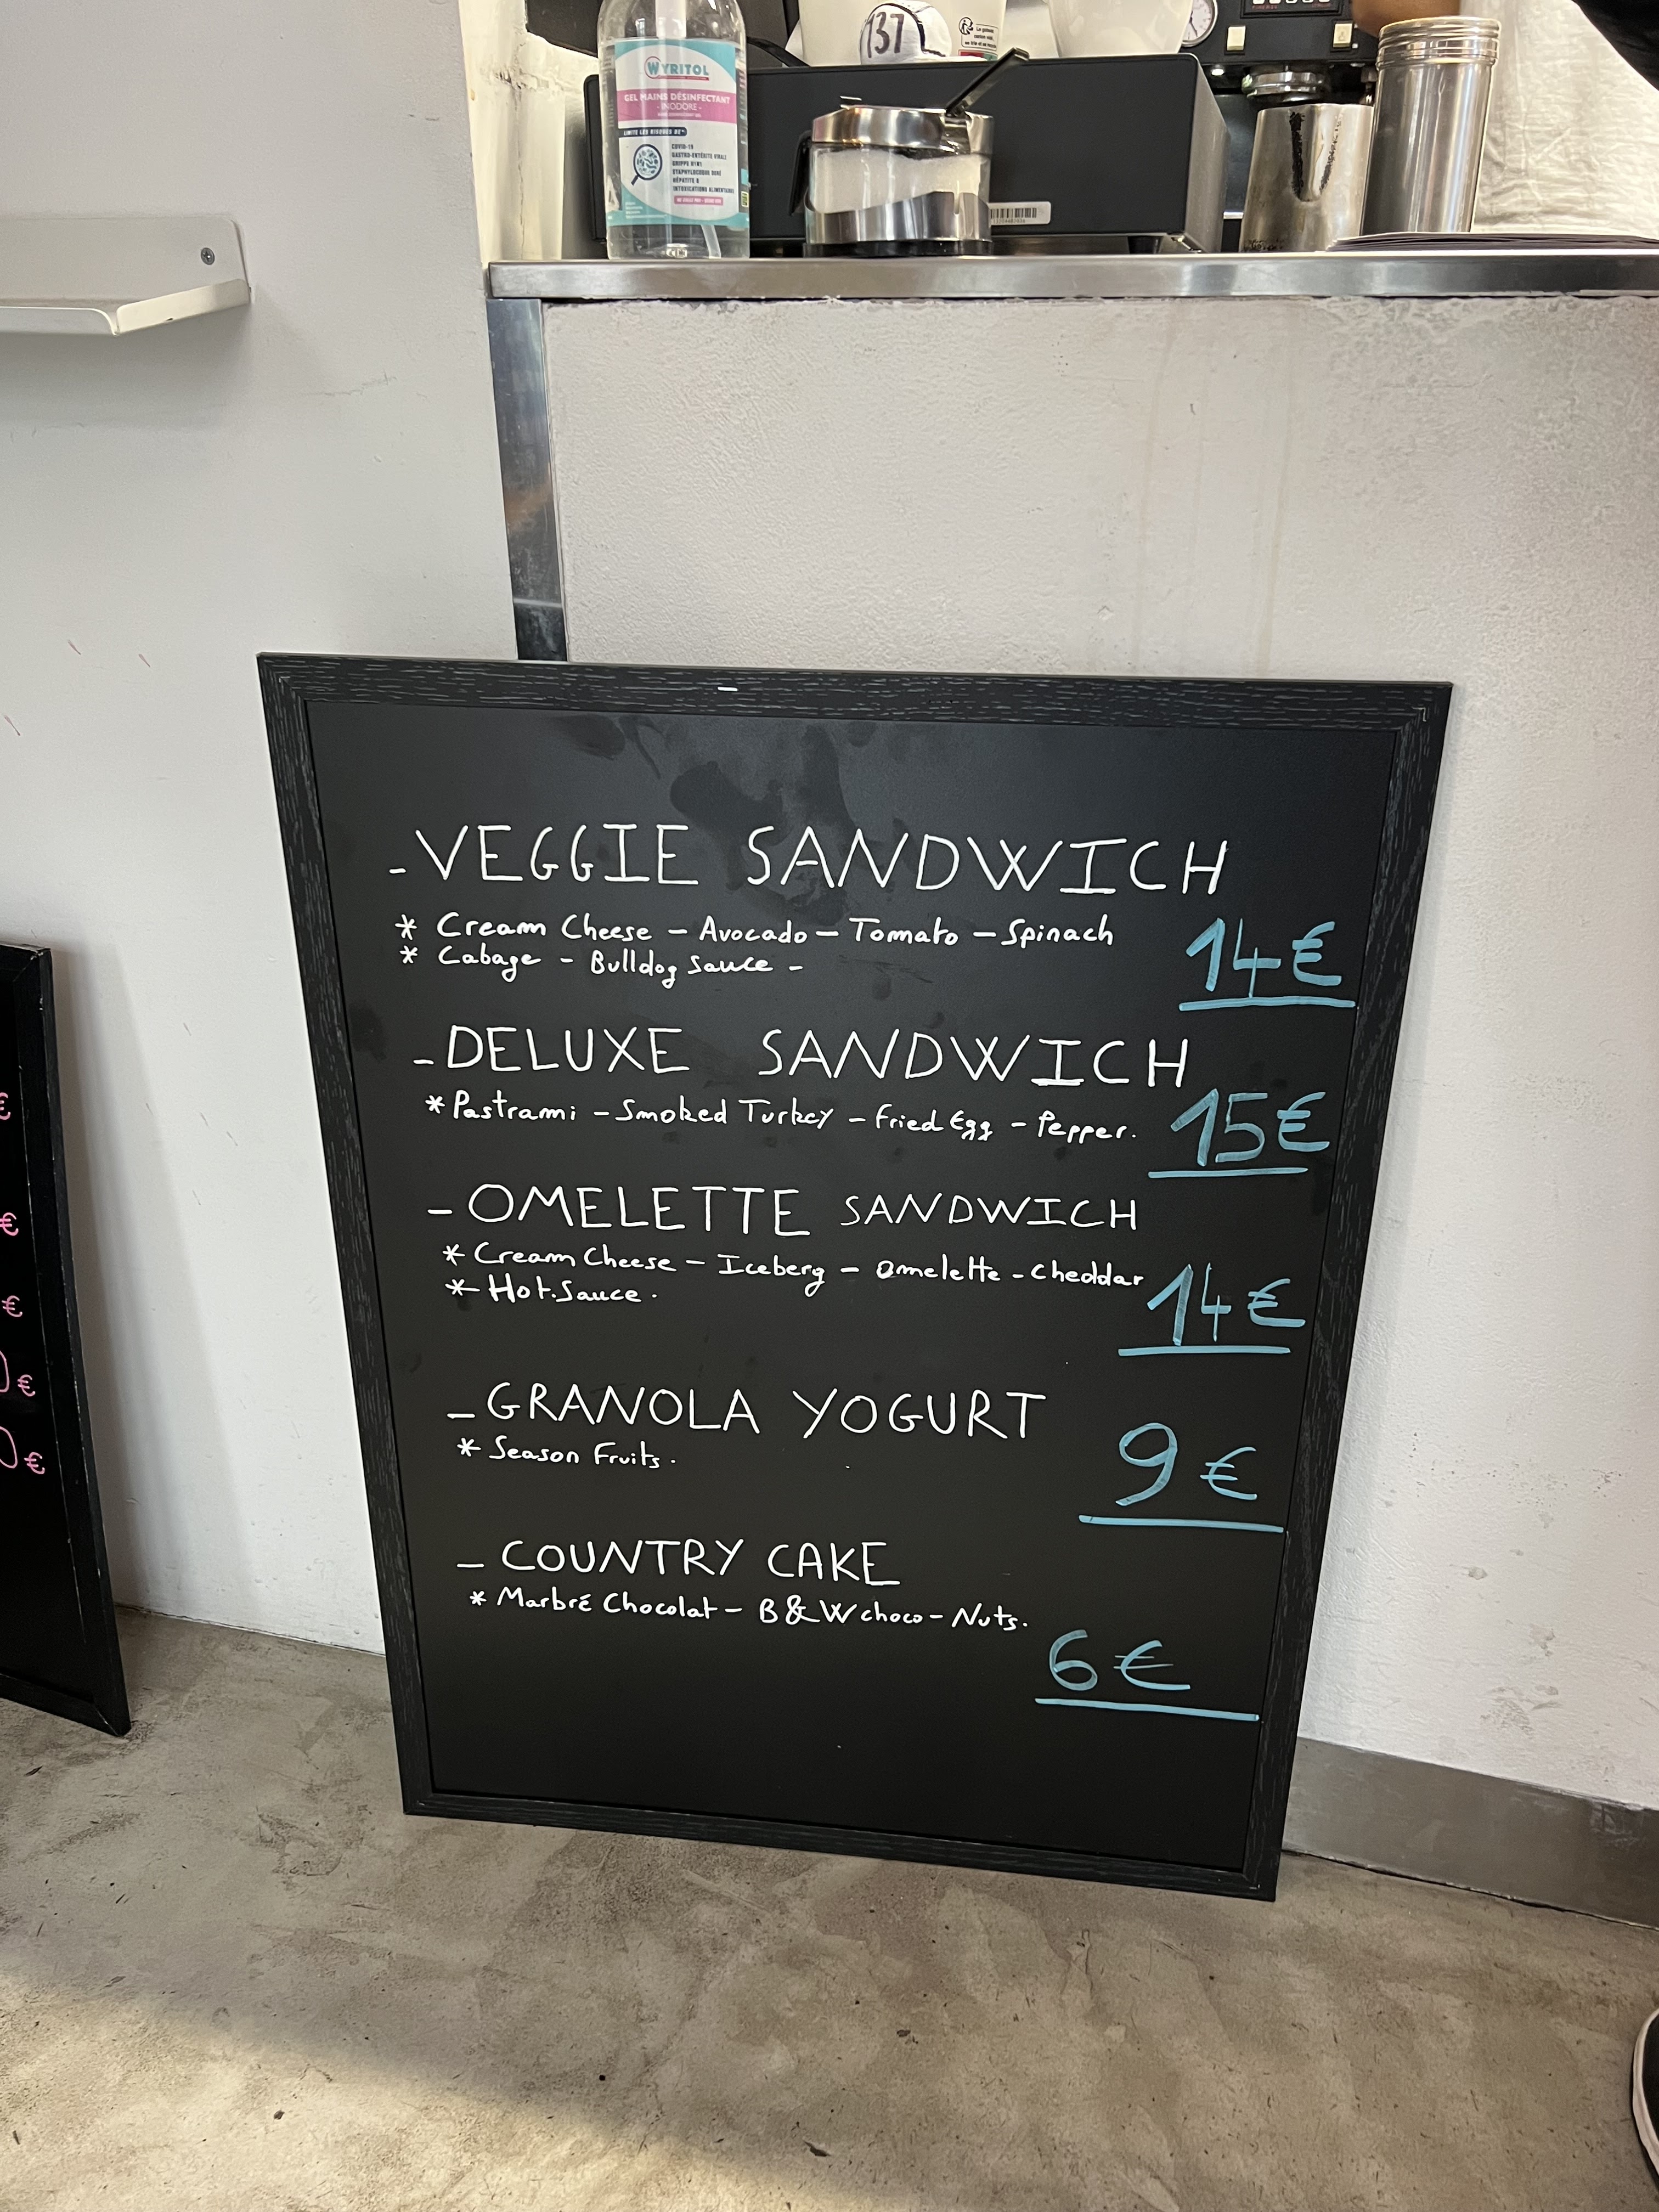 137
WYRITOL
GEL MAINS DÉSINFECTANT
- INODORE -
LIMITE LES RISQUES DE*:
COVID-19
GASTRO-ENTÉRITE VIRALE
GRIPPE H1N1
STAPHYLOCOQUE DORÉ
HÉPATITE B
INTOXICATIONS ALIMENTAIRES
- VEGGIE SANDWICH
* Cream Cheese - Avocado - Tomato - Spinach
* Cabage - Bulldog Sauce -
14€
- DELUXE SANDWICH
* Pastrami - Smoked Turkey - Fried Egg - Pepper.
15€
- OMELETTE SANDWICH
* Cream Cheese - Iceberg - Omelette - Cheddar
* Hot.Sauce.
14€
- GRANOLA YOGURT
* Season Fruits.
9€
- COUNTRY CAKE
* Marbré Chocolat - B&W choco - Nuts.
6€
€
€
€
€
€